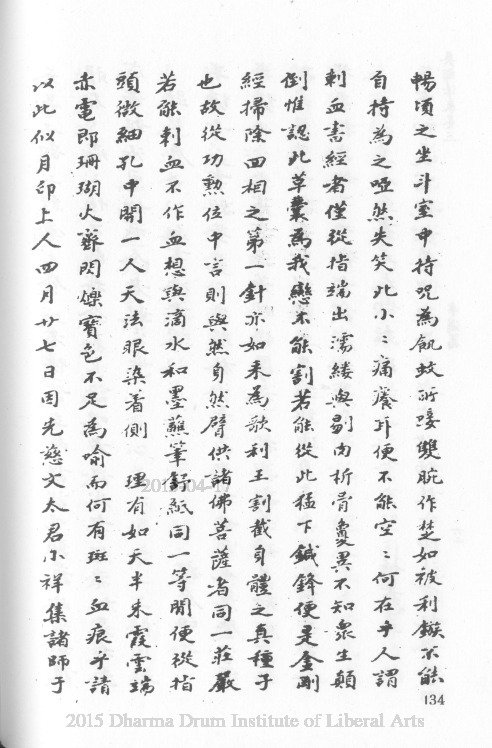 暢頃之坐斗室中持咒為飢蚊所𠯗雙腕作楚如被利鏃不能
自持為之啞然失笑此小〻痛癢耳便不能空〻何在乎人謂
刺血書經者僅從指端出濡縷與剔肉析骨敻異不知衆生顛
倒惟認此草囊為我戀不能割若能從此猛下鍼鋒便是金剛
經掃除四相之第一針亦如来為歌利王割截身體之真種子
也故從功勲位中言則與然身然臂供諸佛菩薩者同一莊嚴
若能刺血不作血想與滴水和墨蘸筆舒紙同一等閒便從指
頭微細孔中開一人天法眼染着側 理有如天半朱霞雲端
赤電即珊瑚火齊閃爍寶色不足為喻而何有斑〻血痕乎請
以此似月印上人四月廿七日因先慈文太君小祥集諸師于
134
2015-04-17
2015 Dharma Drum Institute of Liberal Arts